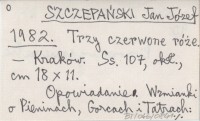 o
SZCZEPAŃSKI Jan Józef
1982. Trzy czerwone róże.
– Kraków. Ss. 107, okł.,
cm 18 x 11.
Opowiadanie. Wzmianki
o Pieninach, Gorcach i Tatrach.